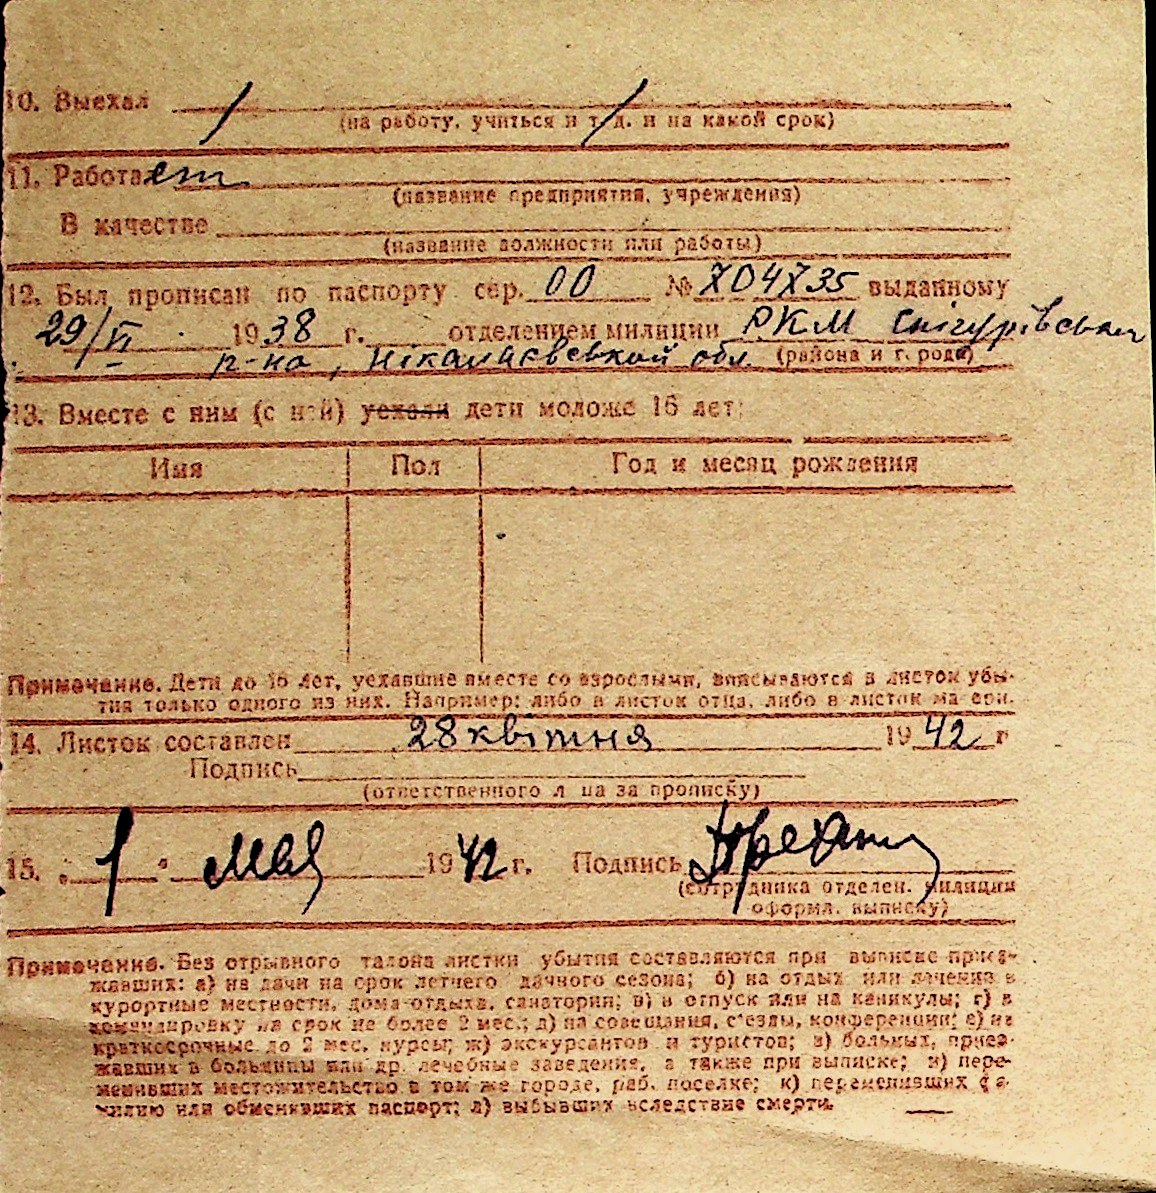 10. Выехал
(на работу, учиться и т. д. и на какой срок)
11. Работает
(название предприятия, учреждения)
В качестве
(название должности или работы)
12. Был прописан по паспорту сер. 00 № 704735 выданному
29/VI 1938 г. отделением милиции РКМ Снігурівськ
р-на, Нікалаєвської обл. (района и города)
13. Вместе с ним (с ней) уехали дети моложе 16 лет:
Имя Пол Год и месяц рождения
Примечание. Дети до 16 лет, уехавшие вместе со взрослыми, вписываются в листок убы-
тия только одного из них. Например: либо в листок отца, либо в листок матери.
14. Листок составлен 28 квітня 1942 г
Подпись
(ответственного лица за прописку)
15. 1 Мая 1942 г. Подпись
(сотрудника отделен. милиции
оформл. выписку)
Примечание. Без отрывного талона листки убытия составляются при выписке приез-
жавших: а) на дачи на срок летнего дачного сезона; б) на отдых или лечение в
курортные местности, дома отдыха, санатории; в) в отпуск или на каникулы; г) в
командировку на срок не более 2 мес.; д) на совещания, с'езды, конференции; е) на
краткосрочные до 2 мес. курсы; ж) экскурсантов и туристов; з) больных, приез-
жавших в больницы или др. лечебные заведения, а также при выписке; и) пере-
менивших местожительство в том же городе, раб. поселке; к) переменивших фа-
милию или обменявших паспорт; л) выбывших вследствие смерти.